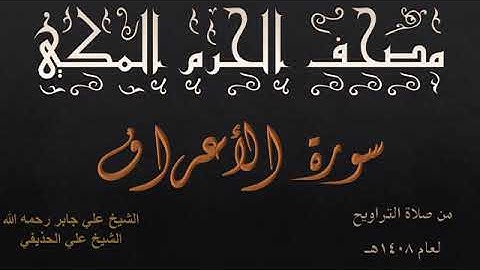 مصحف الحرم المكي
سورة الأعراف
من صلاة التراويح
لعام ١٤٠٨هـ
الشيخ علي جابر رحمه الله
الشيخ علي الحذيفي